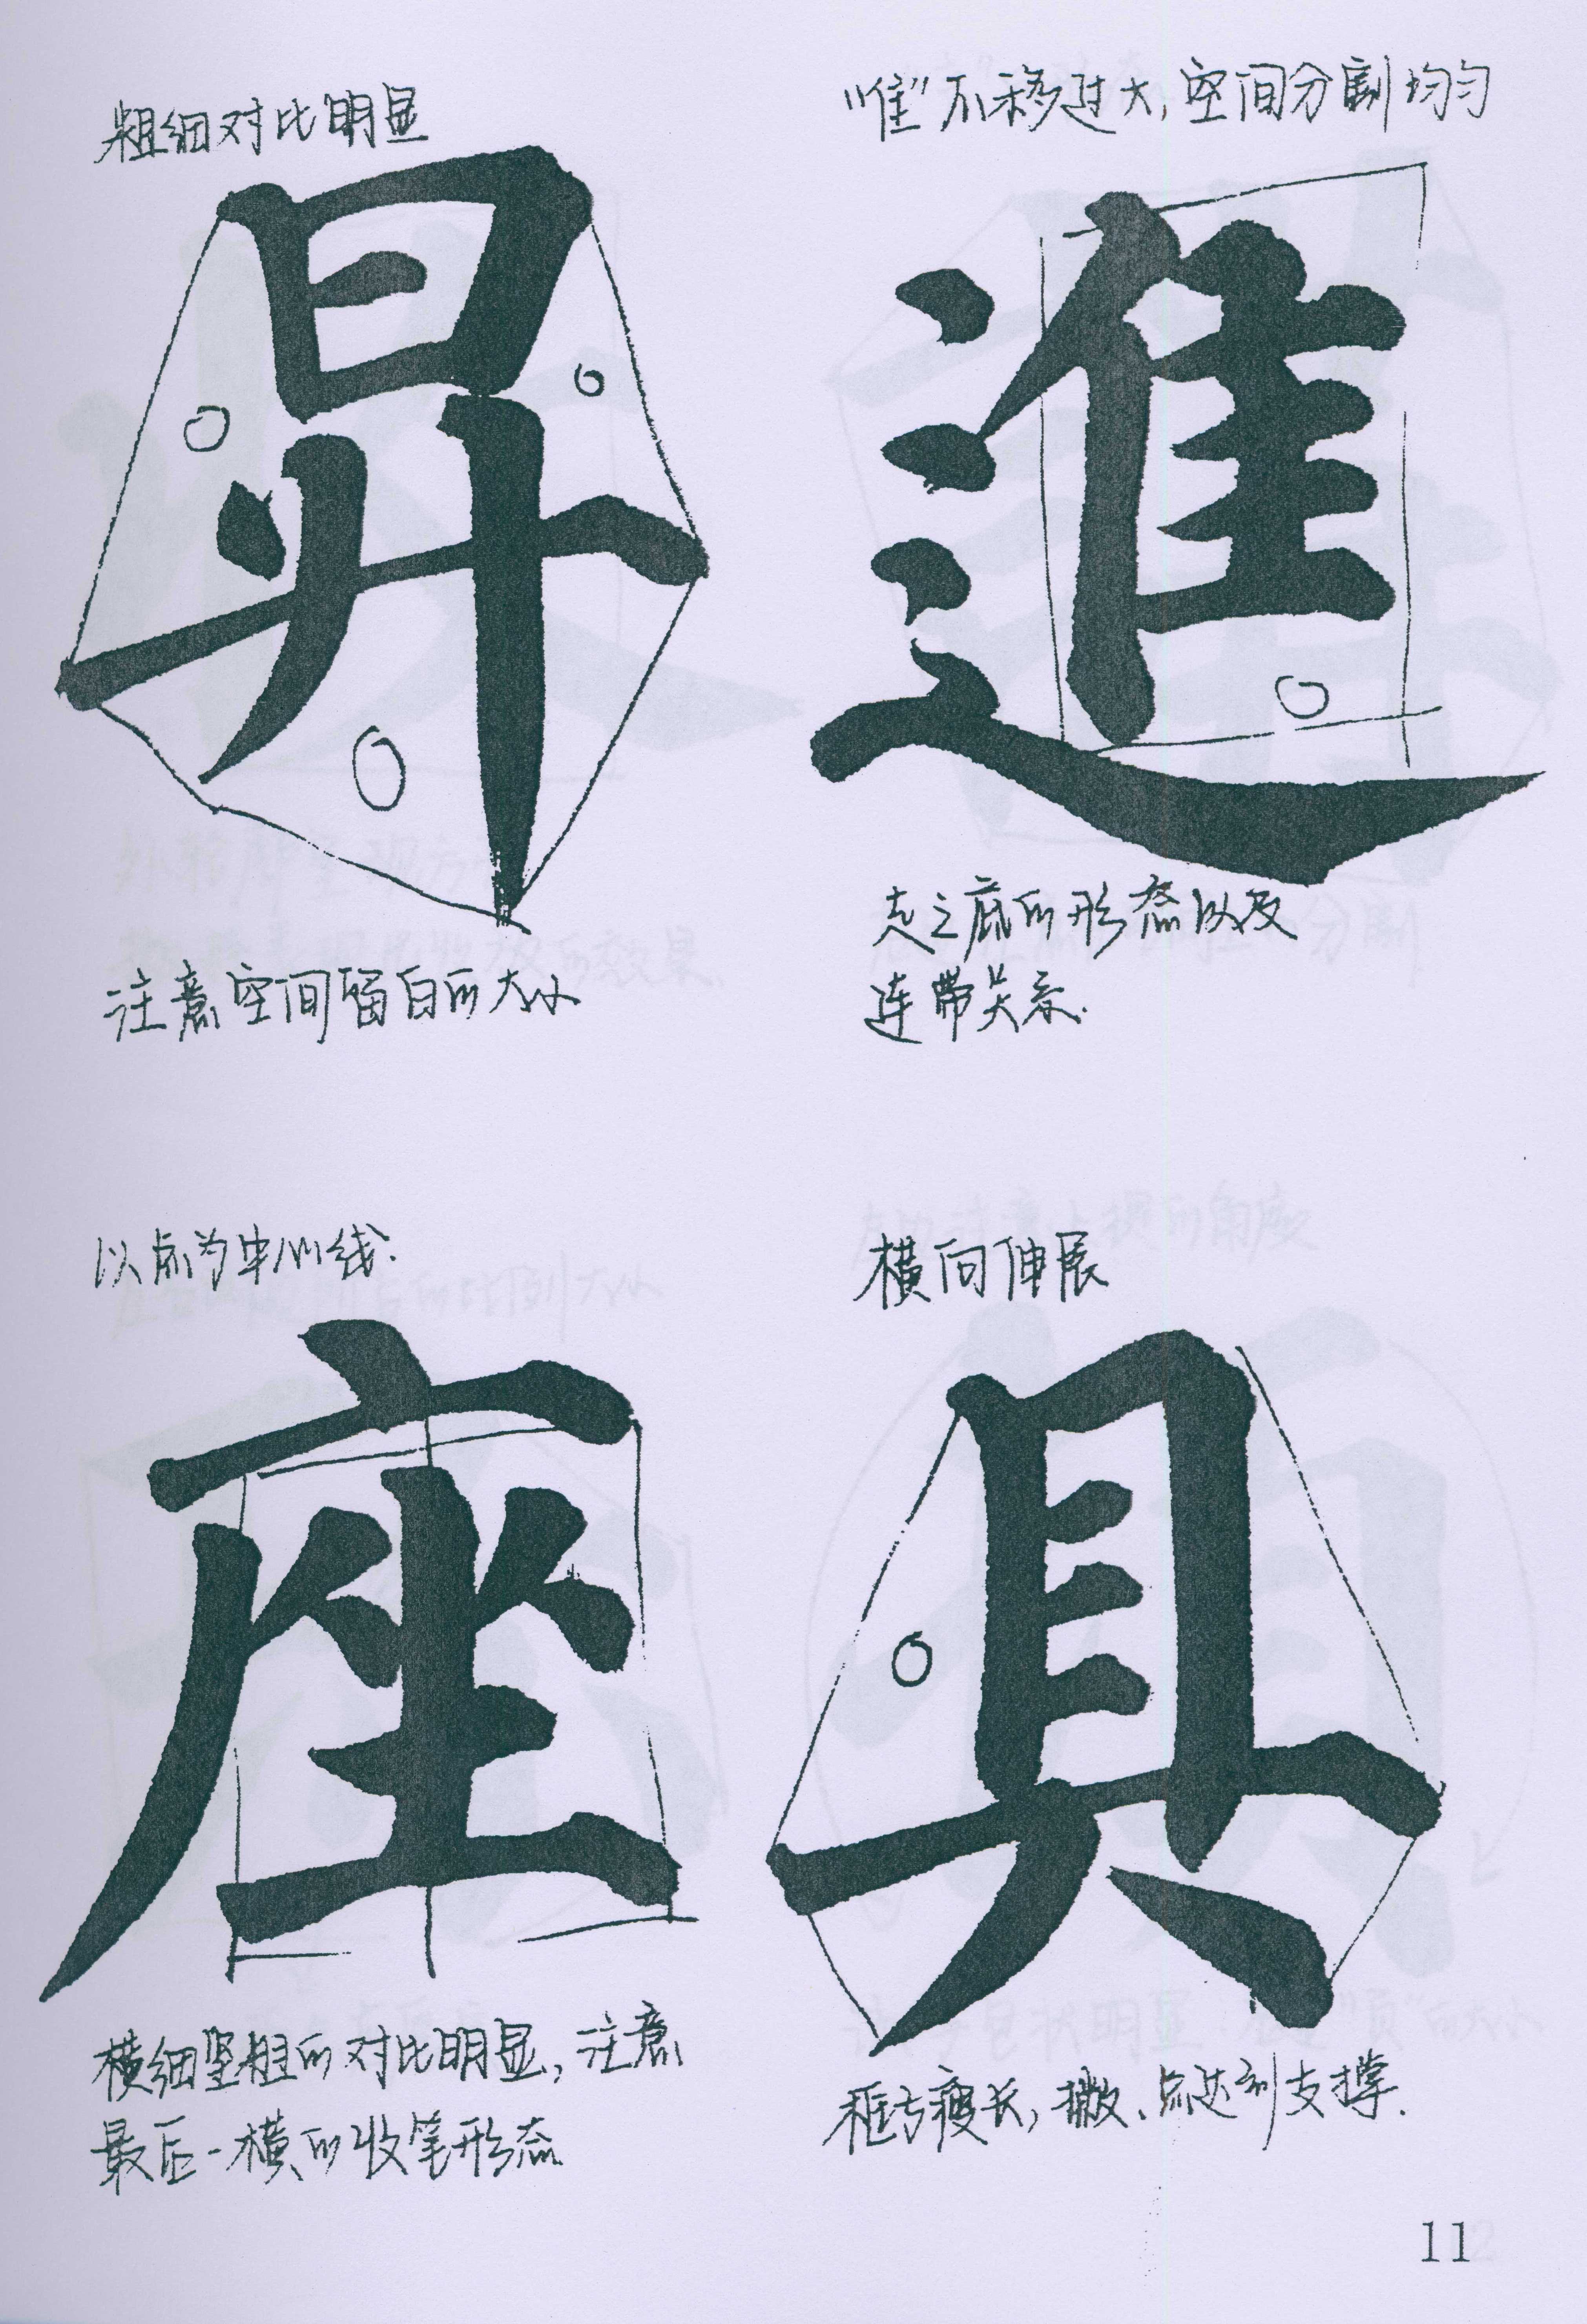 粗细对比明显
昇
注意空间留白的大小
"隹"不移过大,空间分割均匀
進
走之底的形态以及
连带关系.
以点为中心线.
座
横细竖粗的对比明显,注意
最后一横的收笔形态
横向伸展
具
框古瘦长,撇、点达到支撑.
11